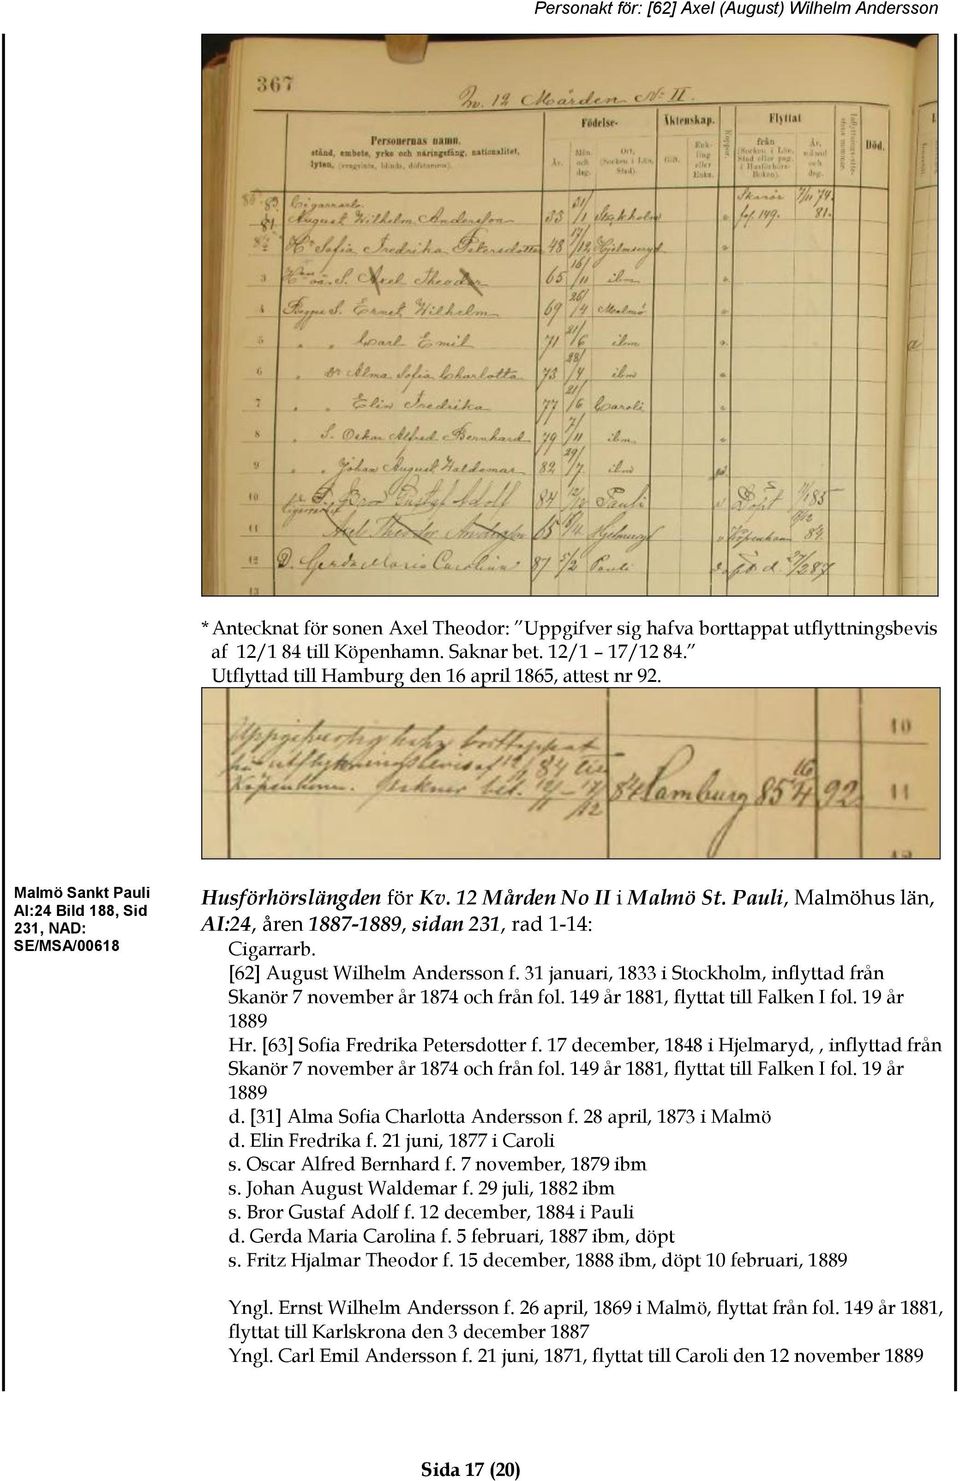 Personakt för: [62] Axel (August) Wilhelm Andersson
367
Kv. 12 Mården No II.
Personernas namn,
stånd, embete, yrke och näringsfång, nationalitet,
lyten, (svagsinta, blinda, döfstumma).
Födelse-
År.
Mån. och dag.
Ort, (Socken i Län, Stad).
Äktenskap.
Gift.
Enkling eller Enka.
Koppor.
Flyttat
från (Socken i Län, Stad eller pag. i Husförhörs-Boken).
År, månad och dag.
Död.
80. 83. Cigarrarb. 31/ Skanör 7/11 74.
81. August Wilhelm Andersson 33 /1 Stockholm fol. 149. 81.
Hu Sofia Fredrika Petersdotter 48 17/12 Hjelmseryd
3 S. Axel Theodor 65 16/11 ibm
4 S. Ernst Wilhelm 69 26/4 Malmö
5 " " Carl Emil 71 21/6 ibm
6 " Dr Alma Sofia Charlotta 73 28/4 ibm
7 " " Elin Fredrika 77 21/6 Caroli
8 " S. Oskar Alfred Bernhard 79 7/11 ibm
9 " " Johan August Waldemar 82 29/7 ibm
10 S. Bror Gustaf Adolf 84 12/12 Pauli Döpt 1/1 85
11 Cigarrarb. Axel Theodor Andersson 65 Hjelmseryd Köpenhamn 84.
12 D. Gerda Maria Carolina 87 5/2 Pauli döpt d. 27/2 87
13
* Antecknat för sonen Axel Theodor: ”Uppgifver sig hafva borttappat utflyttningsbevis
af 12/1 84 till Köpenhamn. Saknar bet. 12/1 – 17/12 84.”
Utflyttad till Hamburg den 16 april 1865, attest nr 92.
Uppgifver sig hafva borttappat 10
utflyttningsbevis af 12/1 84 till
Köpenhamn. Saknar bet. 12/11 – 17/12 84 Hamburg 85 16/4 92. 11
12
Malmö Sankt Pauli
AI:24 Bild 188, Sid
231, NAD:
SE/MSA/00618
Husförhörslängden för Kv. 12 Mården No II i Malmö St. Pauli, Malmöhus län,
AI:24, åren 1887-1889, sidan 231, rad 1-14:
Cigarrarb.
[62] August Wilhelm Andersson f. 31 januari, 1833 i Stockholm, inflyttad från
Skanör 7 november år 1874 och från fol. 149 år 1881, flyttat till Falken I fol. 19 år
1889
Hr. [63] Sofia Fredrika Petersdotter f. 17 december, 1848 i Hjelmaryd, , inflyttad från
Skanör 7 november år 1874 och från fol. 149 år 1881, flyttat till Falken I fol. 19 år
1889
d. [31] Alma Sofia Charlotta Andersson f. 28 april, 1873 i Malmö
d. Elin Fredrika f. 21 juni, 1877 i Caroli
s. Oscar Alfred Bernhard f. 7 november, 1879 ibm
s. Johan August Waldemar f. 29 juli, 1882 ibm
s. Bror Gustaf Adolf f. 12 december, 1884 i Pauli
d. Gerda Maria Carolina f. 5 februari, 1887 ibm, döpt
s. Fritz Hjalmar Theodor f. 15 december, 1888 ibm, döpt 10 februari, 1889
Yngl. Ernst Wilhelm Andersson f. 26 april, 1869 i Malmö, flyttat från fol. 149 år 1881,
flyttat till Karlskrona den 3 december 1887
Yngl. Carl Emil Andersson f. 21 juni, 1871, flyttat till Caroli den 12 november 1889
Sida 17 (20)